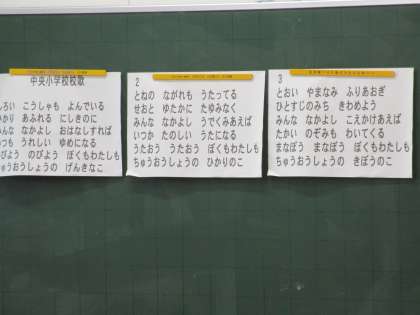 中央小学校校歌
しろい こうしゃも よんでいる
ひかり あふれる にしきのに
みんな なかよし おはなしすれば
いつも うれしい ゆめになる
のびよう のびよう ぼくもわたしも
ちゅうおうしょうの げんきなこ
2
とねの ながれも うたってる
せおと ゆたかに たゆみなく
みんな なかよし うでくみあえば
いつか たのしい うたになる
うたおう うたおう ぼくもわたしも
ちゅうおうしょうの ひかりのこ
3
とおい やまなみ ふりあおぎ
ひとすじのみち きわめよう
みんな なかよし こえかけあえば
たかい のぞみも わいてくる
まなぼう まなぼう ぼくもわたしも
ちゅうおうしょうの きぼうのこ